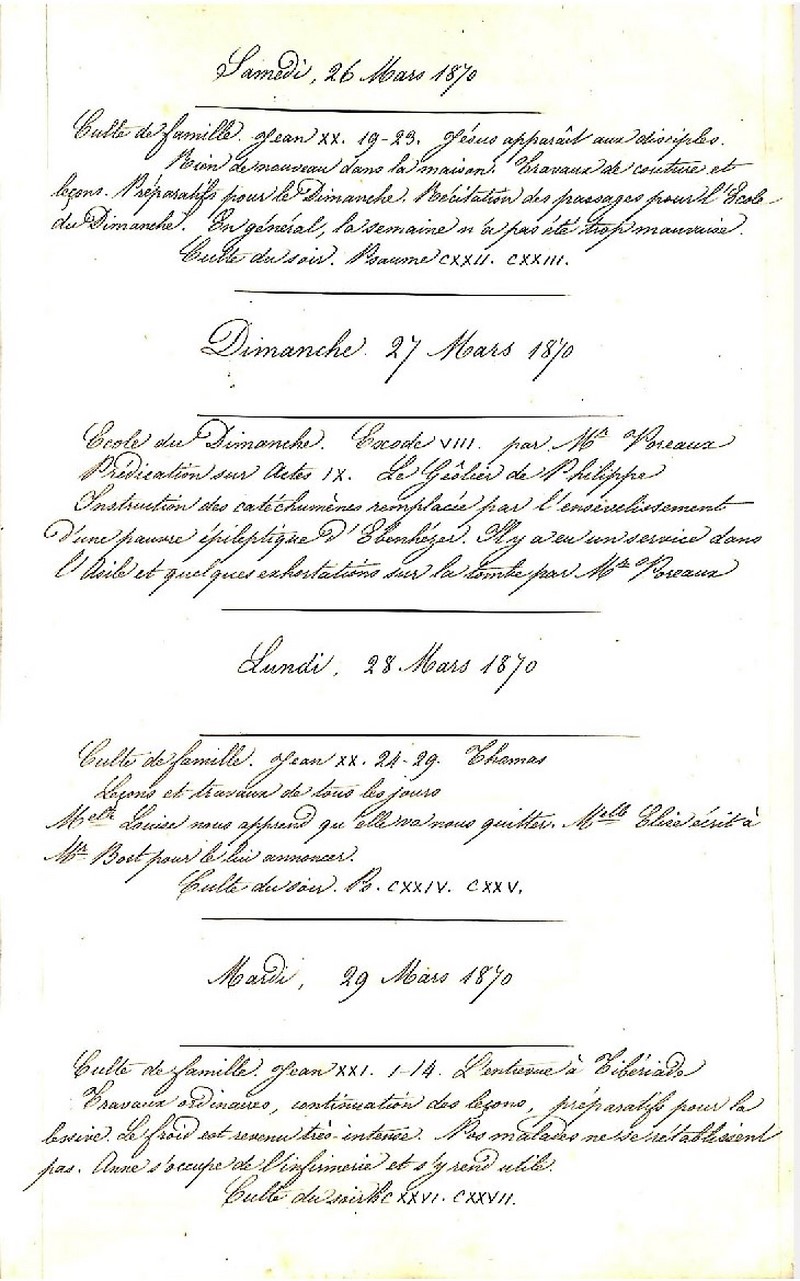 Samedi, 26 Mars 1870
Culte de famille. Jean XX. 19-23. Jésus apparaît aux disciples.
Rien de nouveau dans la maison. Travaux de couture et
leçons. Préparatifs pour le Dimanche. Récitation des passages pour l'Ecole
du Dimanche. En général, la semaine n'a pas été trop mauvaise.
Culte du soir. Psaume CXXII. CXXIII.
Dimanche 27 Mars 1870
Ecole du Dimanche. Exode VIII. par Mr Poreaux
Prédication sur Actes IX. Le Geôlier de Philippe
Instruction des catéchumènes remplacée par l'ensevelissement
d'une pauvre épileptique d'Ebenhézer. Il y a eu un service dans
l'Asile et quelques exhortations sur la tombe par Mr Poreaux
Lundi, 28 Mars 1870
Culte de famille. Jean XX. 24-29. Thomas
Leçons et travaux de tous les jours
Melle Louise nous apprend qu'elle va nous quitter. Melle Elise écrit à
Mr Bost pour le lui annoncer.
Culte du soir. Ps. CXXIV. CXXV.
Mardi, 29 Mars 1870
Culte de famille. Jean XXI. 1-14. L'entrevue à Tibériade
Travaux ordinaires, continuation des leçons, préparatifs pour la
lessive. Le froid est revenu très intense. Nos malades ne se rétablissent
pas. Anne s'occupe de l'infirmerie et s'y rend utile.
Culte du soir Ps CXXVI. CXXVII.